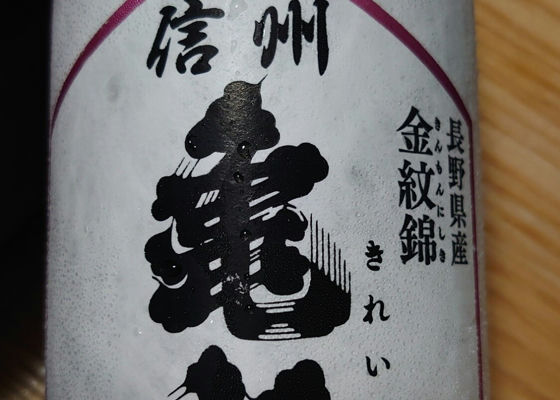 信州
亀
きれい
長野県産
金紋錦
きんもんにしき